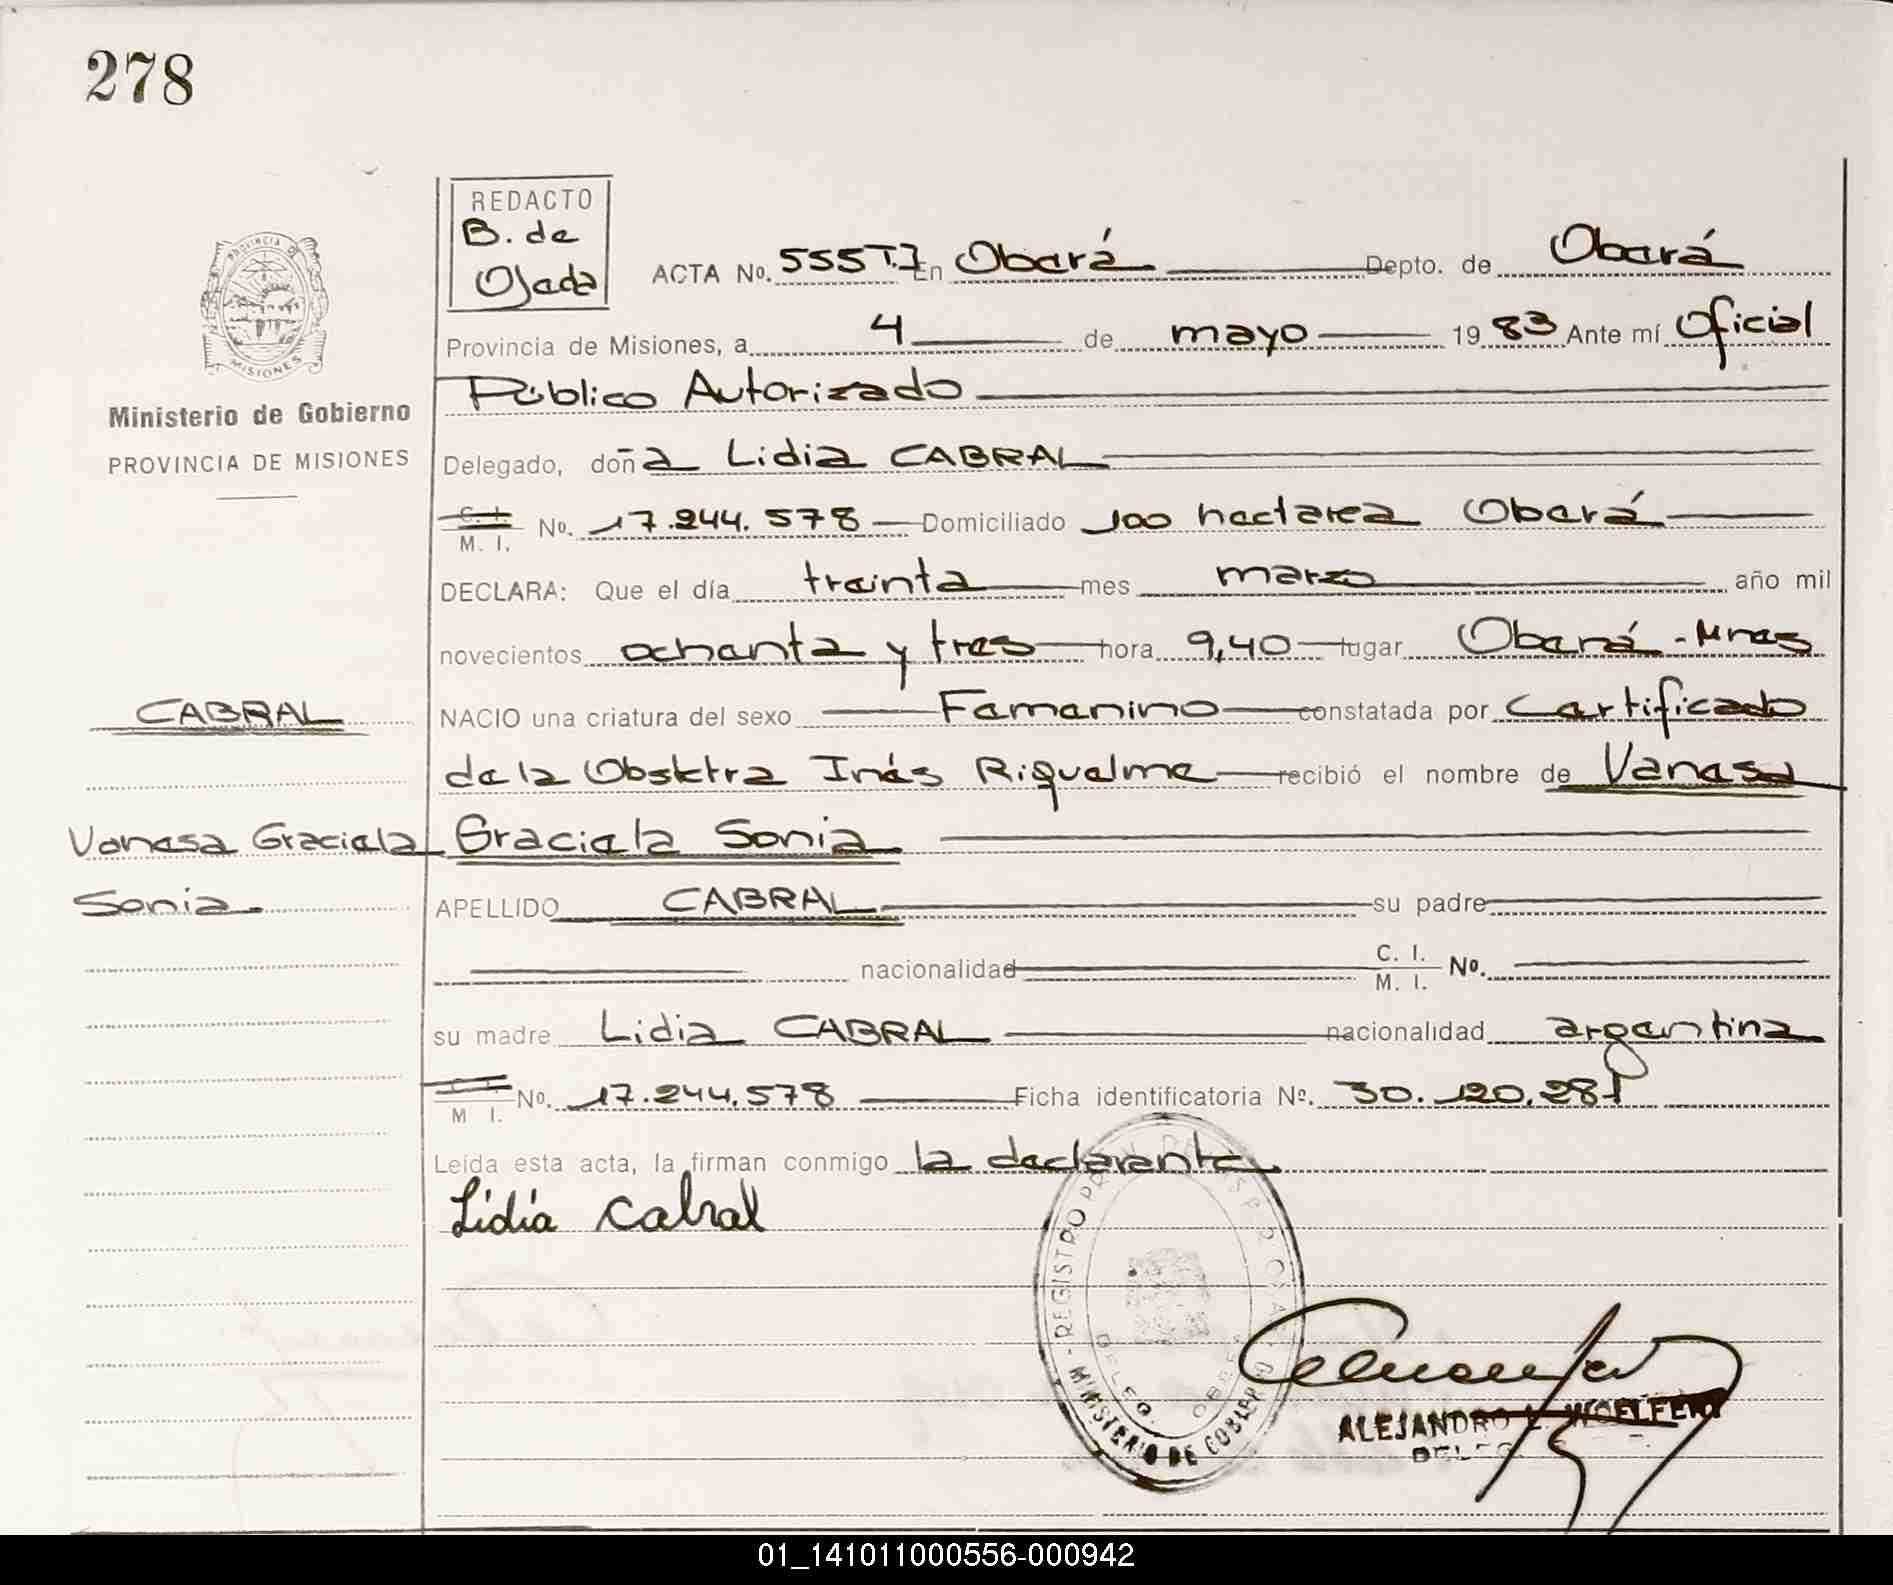 278
REDACTO
B. de
Ojeda
PROVINCIA DE
MISIONES
ACTA No. 555T.I En Oberá Depto. de Oberá
Provincia de Misiones, a 4 de mayo 19 83 Ante mí Oficial
Público Autorizado
Ministerio de Gobierno
PROVINCIA DE MISIONES
Delegado, doña Lidia CABRAL
C. I. M. I. No. 17.244.578 Domiciliado 100 hectarea Oberá
DECLARA: Que el día treinta mes marzo año mil
novecientos ochenta y tres hora 9,40 lugar Oberá - Mnes
CABRAL
NACIO una criatura del sexo Femenino constatada por Certificado
de la Obstetra Inés Riquelme recibió el nombre de Vanesa
Vanesa Graciela
Graciela Sonia
Sonia
APELLIDO CABRAL su padre
nacionalidad C. I. M. I. No.
su madre Lidia CABRAL nacionalidad argentina
M I. No. 17.244.578 Ficha identificatoria No. 30.120.281
Leída esta acta, la firman conmigo la declarante
Lidia Cabral
REGISTRO
DELEG. OBERÁ
MINISTERIO DE GOBIERNO
ALEJANDRO L. WOELFERT
01_141011000556-000942